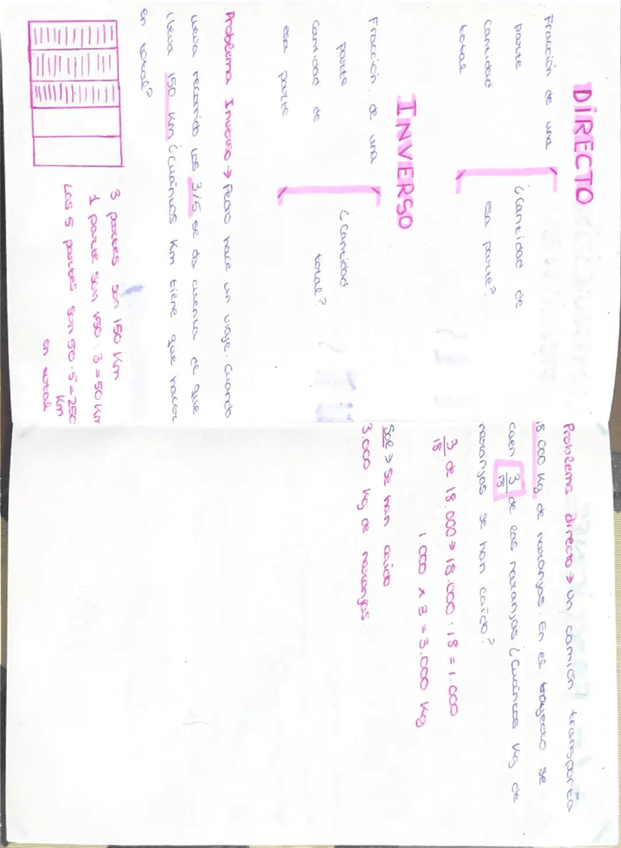 DIRECTO
Fracción de una
parte
Cantidad
total
¿Cantidad de
esa parte?
INVERSO
Fracción de una
parte
Cantidad de
esa parte
¿Cantidad
total?
Problema Inverso → Pedro hace un viaje. Cuando
lleva recorrido los 3/5 se da cuenta de que
lleva 150 km ¿Cuántos km tiene que hacer
en total?
3 partes son 150 km
1 part son 150:3=50 km
Las 5 partes son 50·5=250
km
en total
Problema directo → Un camión transporta
18.000 kg de naranjas. En el trayecto se
caen 3/18 de las naranjas ¿Cuántos kg de
naranjas se han caído?
3/18 de 18.000 → 18.000 : 18 = 1.000
1.000 x 3 = 3.000 kg
Sol → Se han caído
3.000 kg de naranjas